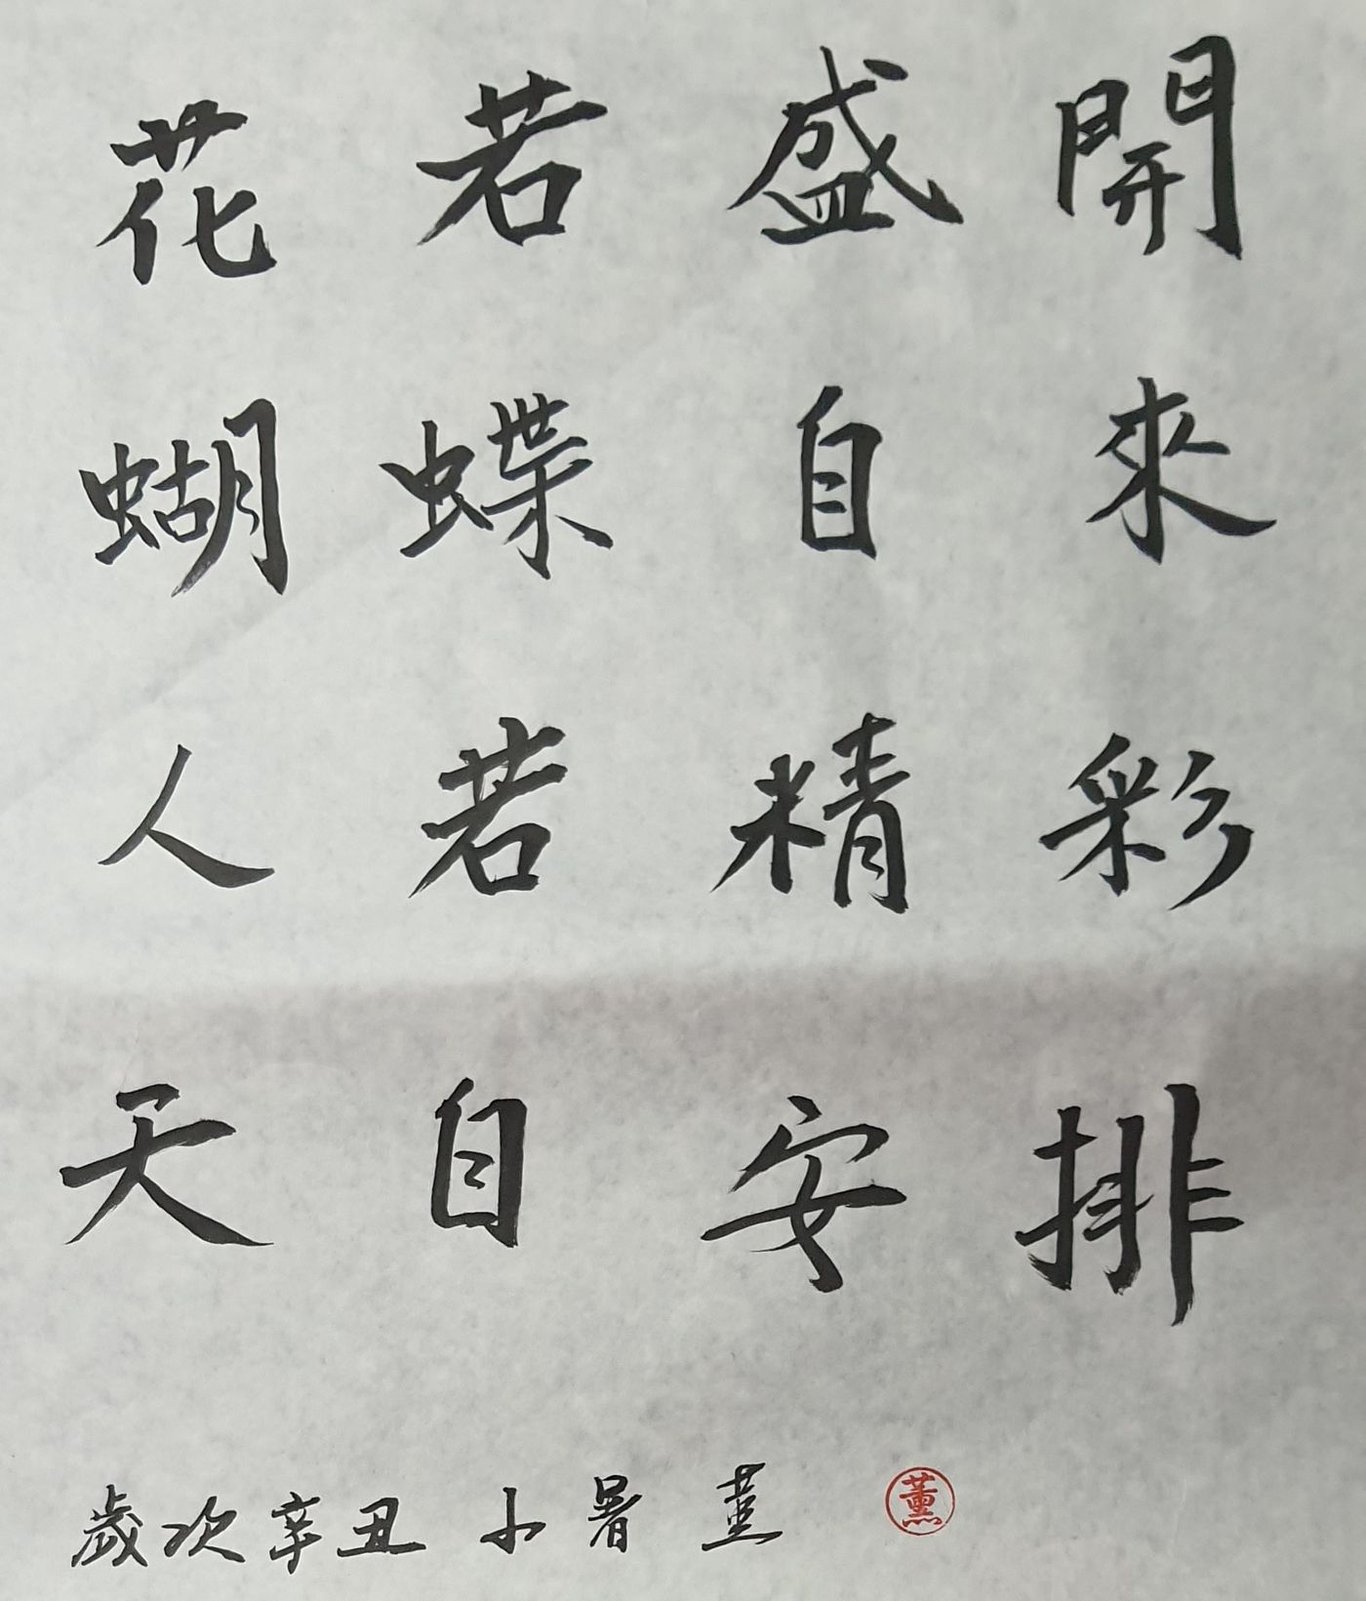 花若盛開
蝴蝶自來
人若精彩
天自安排
歲次辛丑 小暑 薰 薰